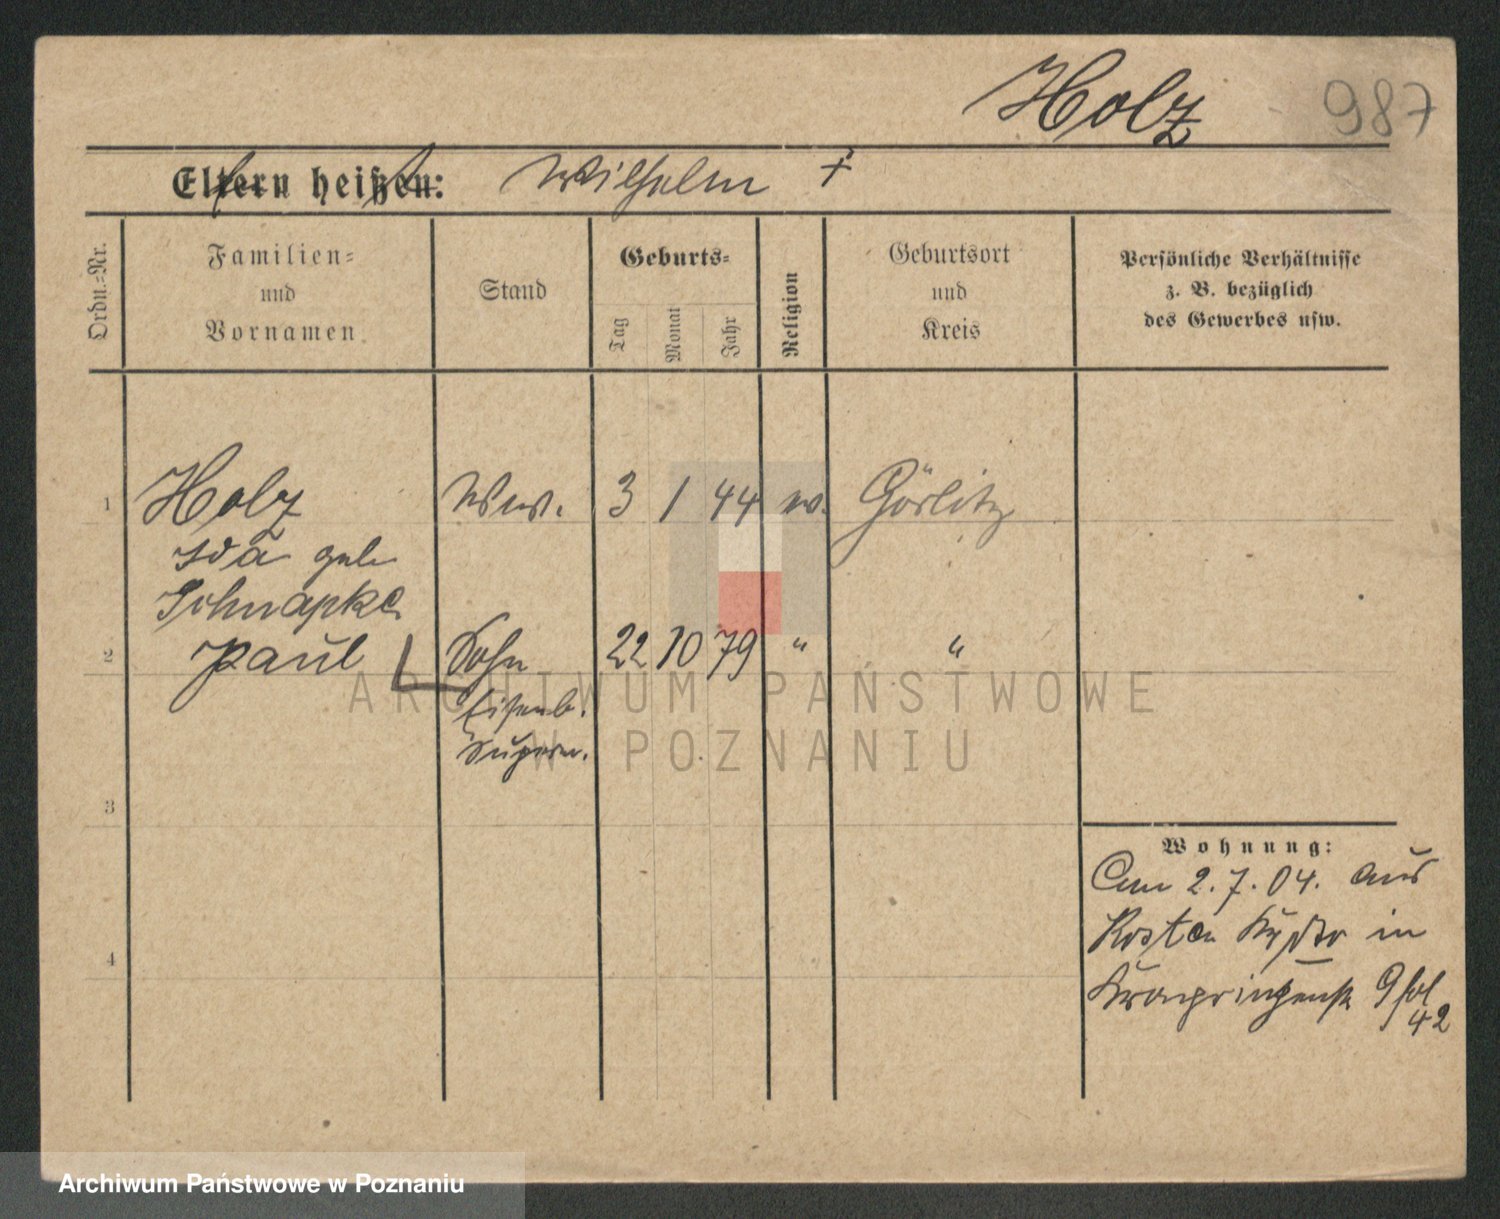 Holz 987
Eltern heißen: Wilhelm †
Ordn.-Nr.
Familien-
und
Vornamen
Stand
Geburts-
Tag
Monat
Jahr
Religion
Geburtsort
und
Kreis
Persönliche Verhältnisse
z. B. bezüglich
des Gewerbes usw.
1 Holz Ww. 3 1 44 ev. Görlitz
Ida geb
Schnapka
2 Paul Sohn 22 10 79 " "
Eisenb.
Supern.
3
4
Wohnung:
Am 2. 7. 04. aus
Kosten in
Kronprinzenstr
42
ARCHIWUM PAŃSTWOWE
W POZNANIU
Archiwum Państwowe w Poznaniu